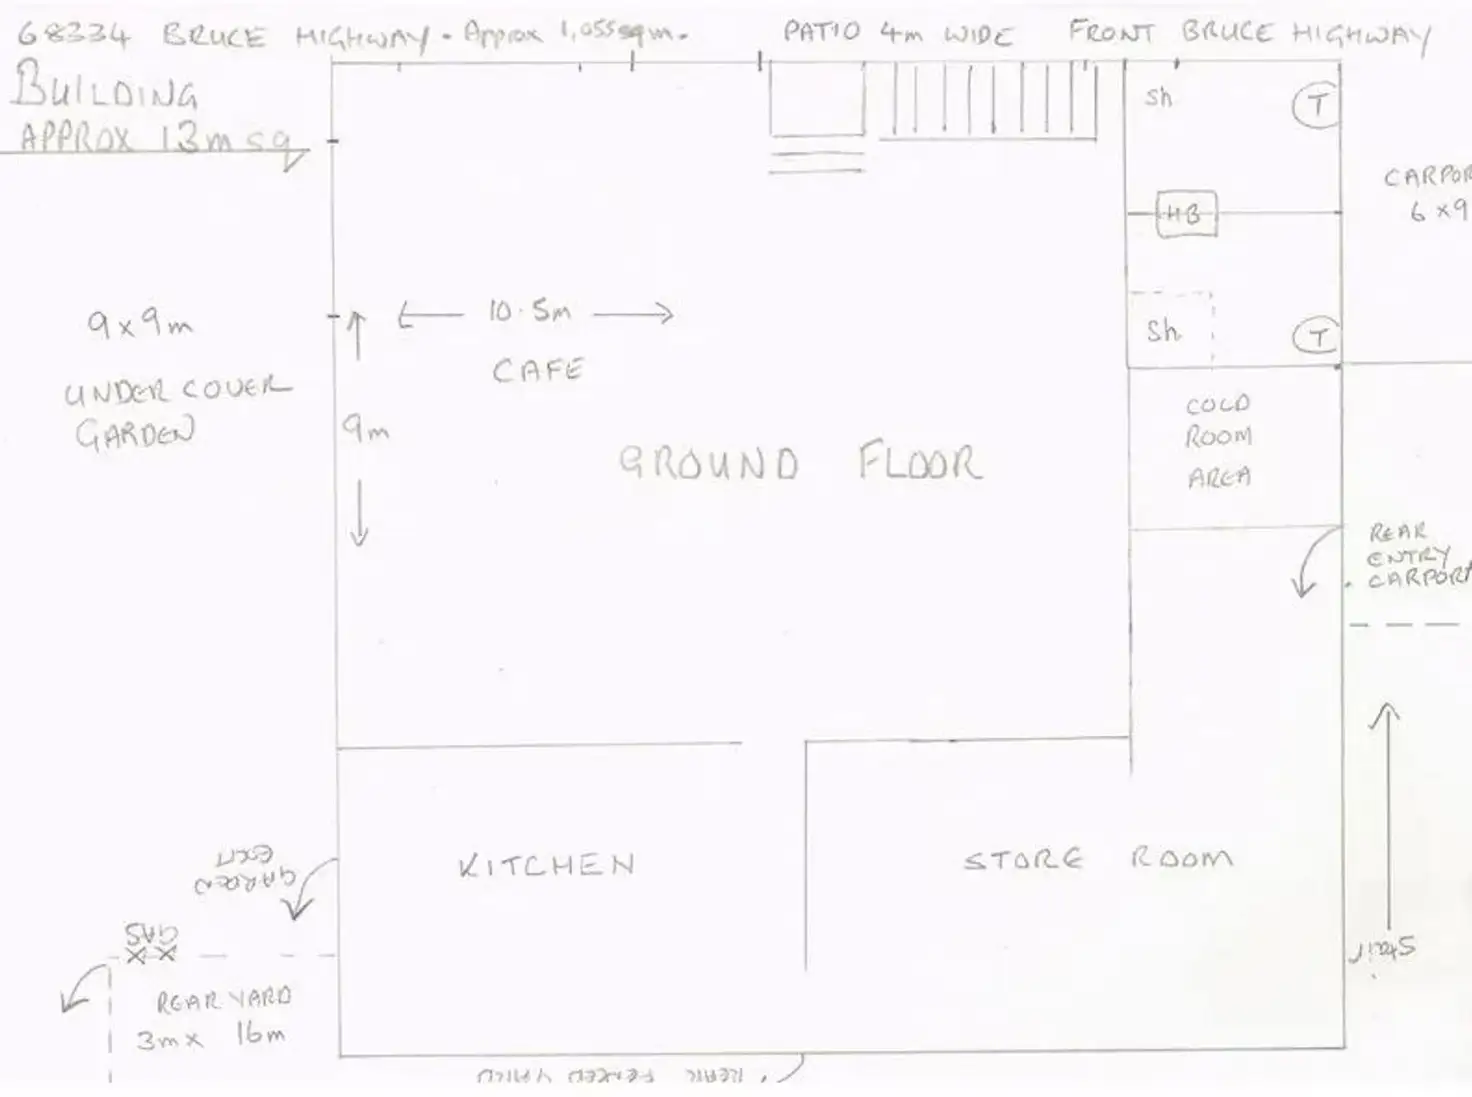 68334 BRUCE HIGHWAY. Approx 1,055sqm.
PATIO 4m WIDE
FRONT BRUCE HIGHWAY
BUILDING
APPROX 13m sq
Sh
T
CARPOR
6 x 9
HB
9 x 9m
UNDER COVER
GARDEN
10.5m
CAFE
9m
Sh
T
COLD
ROOM
AREA
GROUND FLOOR
REAR
ENTRY
CARPORT
KITCHEN
STORE ROOM
GARDEN
EXIT
GAS
Stair
REAR YARD
3m x 16m
REAR FENCED YARD